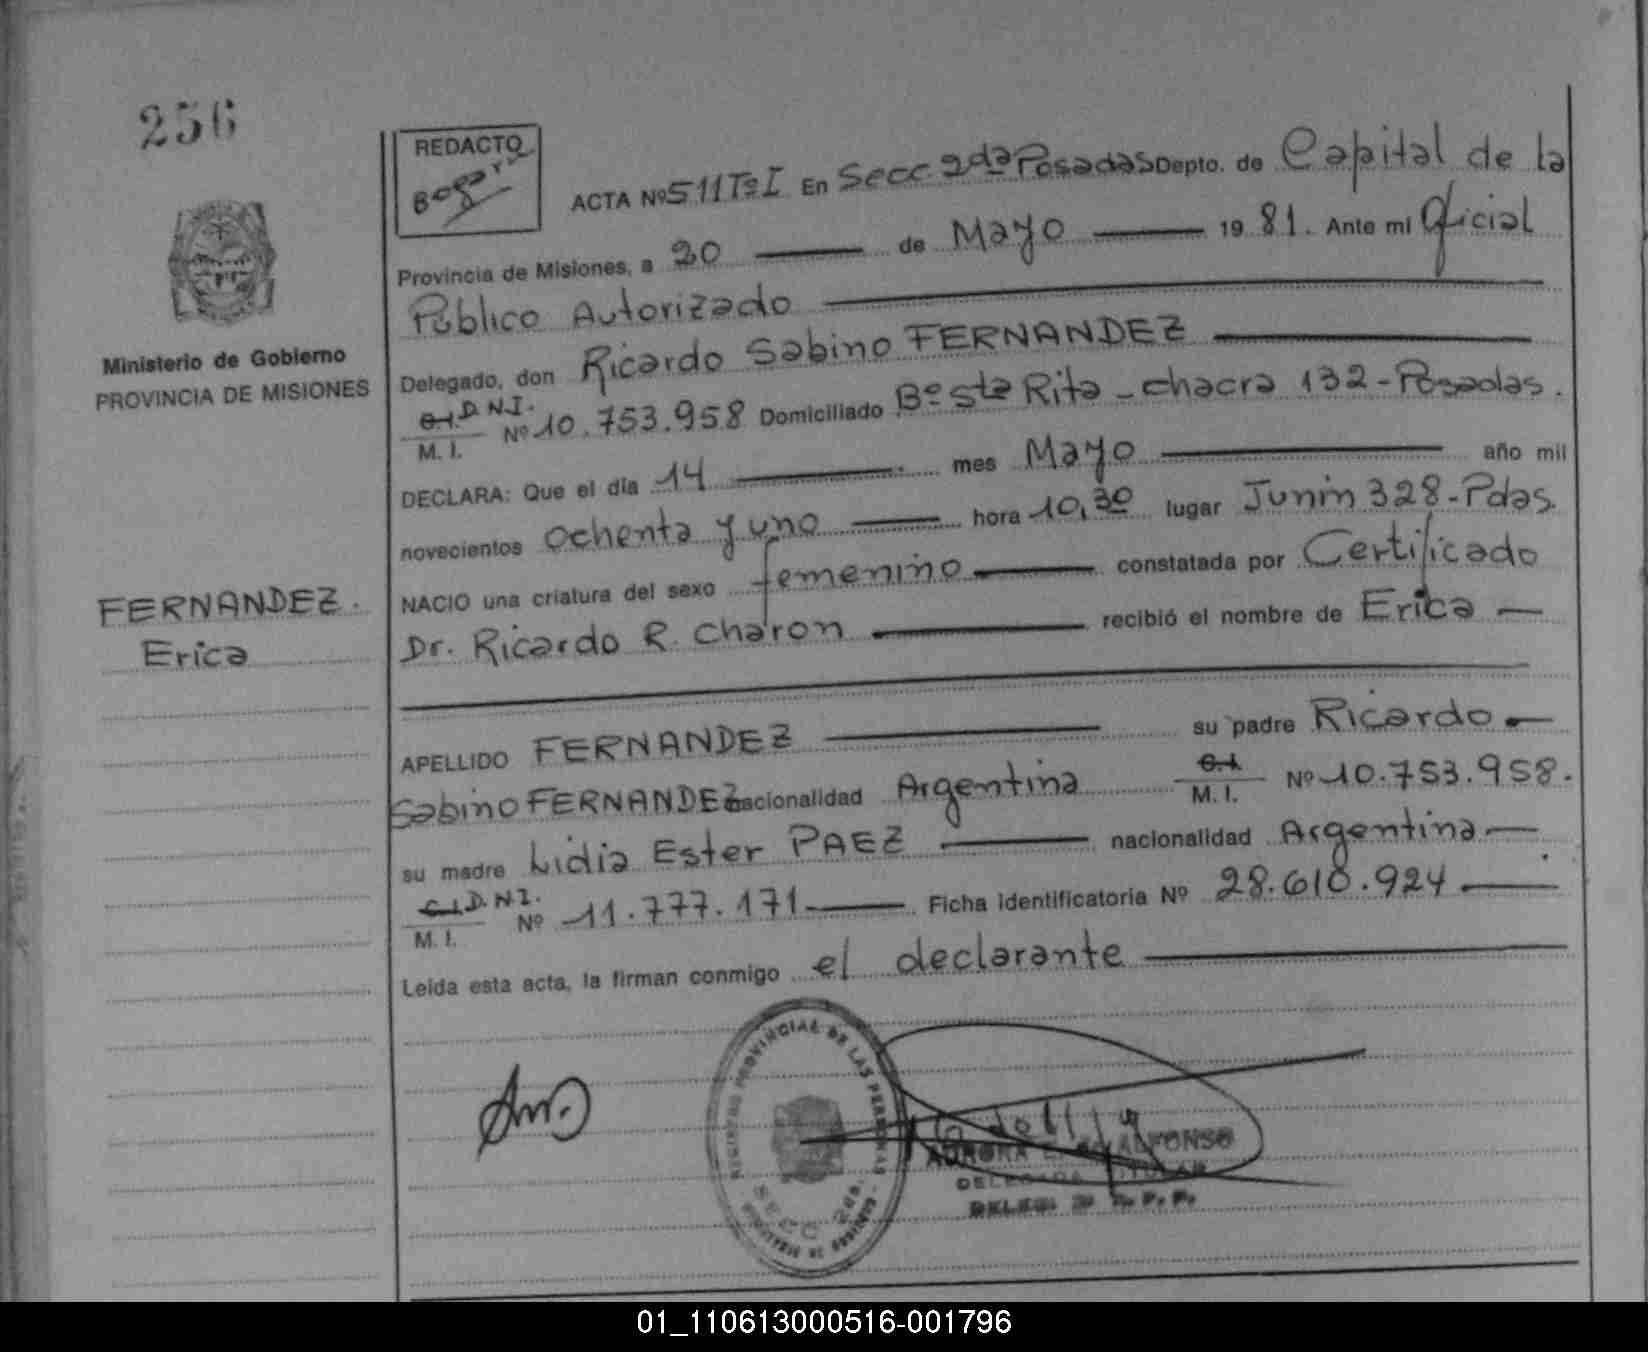 256
REDACTO
ACTA Nº 511 Tº I En Secc. 2da Posadas Depto. de Capital de la
Provincia de Misiones, a 20 de Mayo 19 81. Ante mi Oficial
Público Autorizado
Ministerio de Gobierno
PROVINCIA DE MISIONES
Delegado, don Ricardo Sabino FERNANDEZ
C.I. D.N.I. Nº 10.753.958 Domiciliado Bº Sta Rita - chacra 132 - Posadas.
M. I.
DECLARA: Que el día 14 mes Mayo año mil
novecientos ochenta y uno hora 10,30 lugar Junín 328 - Pdas.
NACIO una criatura del sexo femenino constatada por Certificado
FERNANDEZ.
Erica
Dr. Ricardo R. Charon recibió el nombre de Erica
APELLIDO FERNANDEZ su padre Ricardo
Sabino FERNANDEZ nacionalidad Argentina C.I. Nº 10.753.958.
M. I.
su madre Lidia Ester PAEZ nacionalidad Argentina
C.I. D.N.I. Nº 11.777.171 Ficha identificatoria Nº 28.610.924
M. I.
Leída esta acta, la firman conmigo el declarante
REGISTRO PROVINCIAL DE LAS PERSONAS
SECC. 2da.
AURORA ALFONSO
DELEGADA TITULAR
01_110613000516-001796